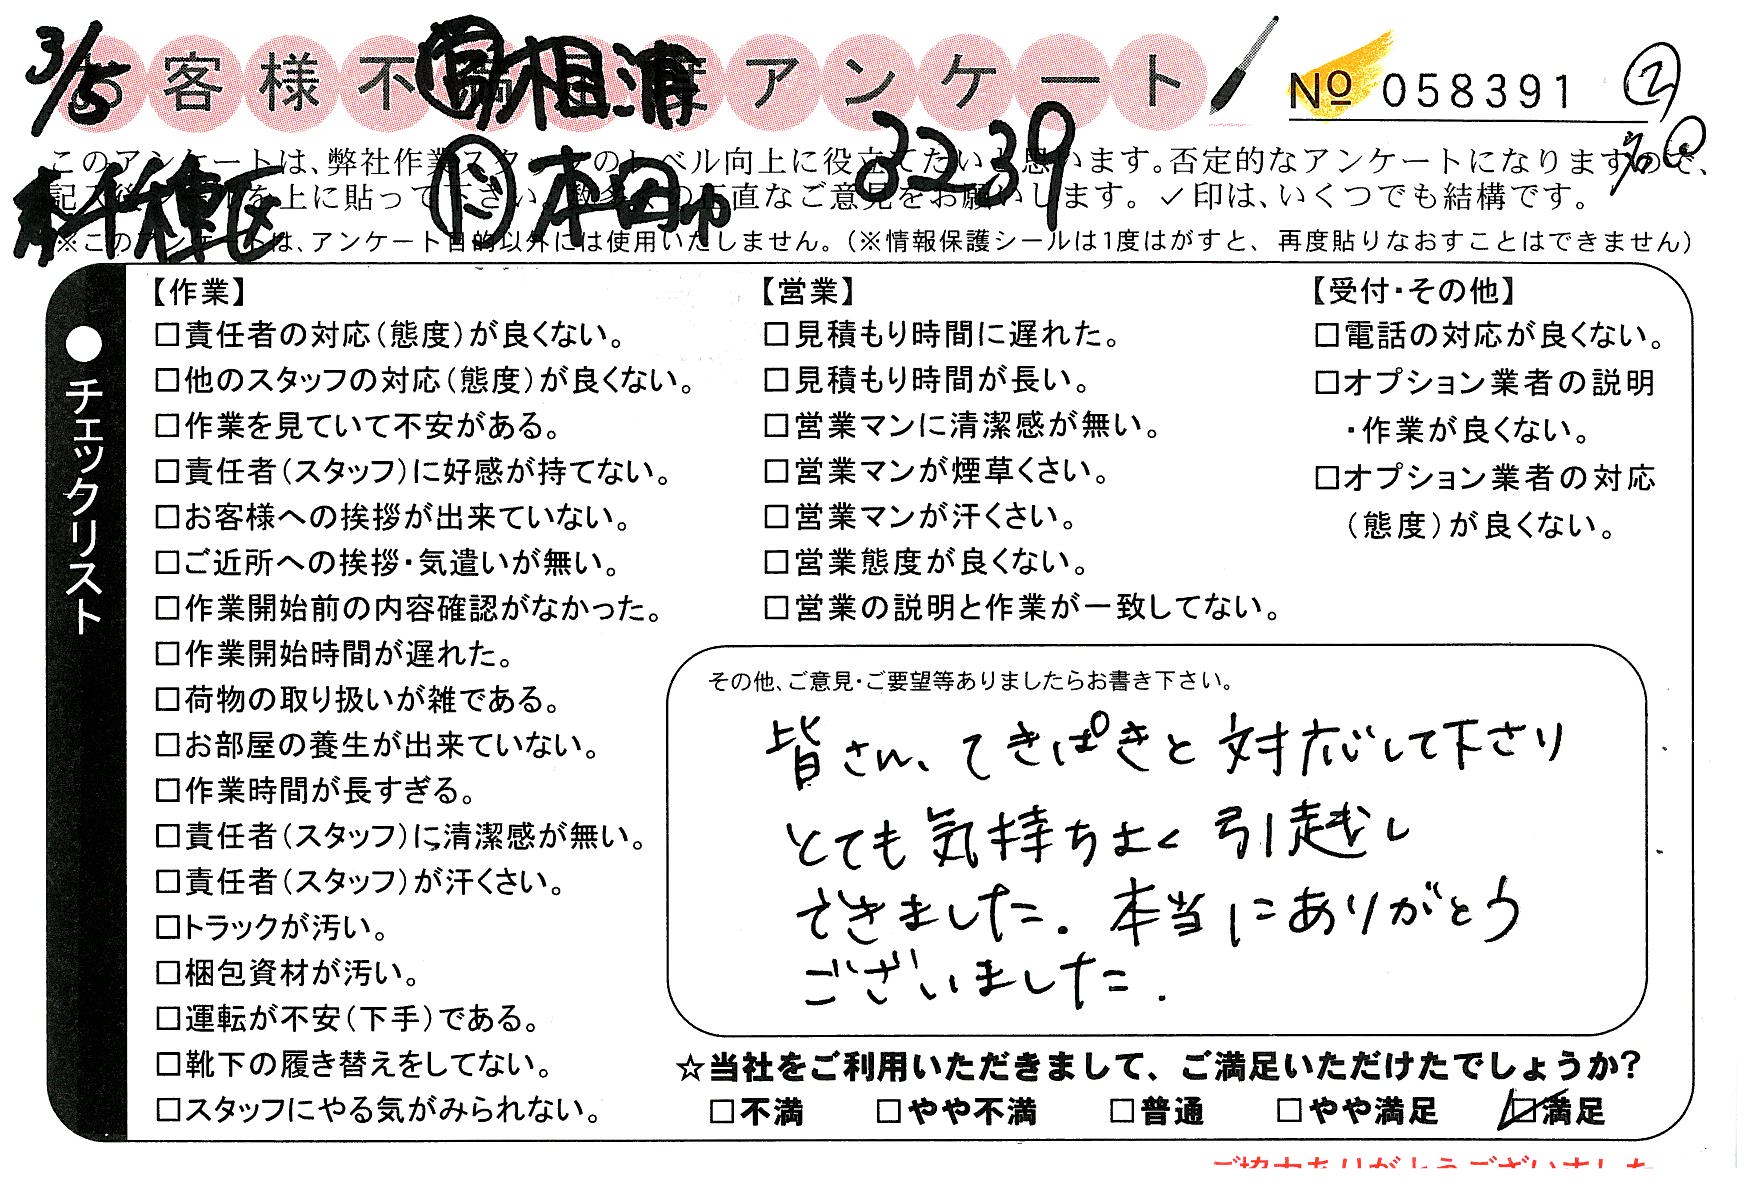 3/5
お客様不満足度アンケート
営 相浦
No 058391
②
このアンケートは、弊社作業スタッフのレベル向上に役立てたいと思います。否定的なアンケートになりますので、
3239
記入後シールを上に貼って下さい。数多くの正直なご意見をお願いします。✓印は、いくつでも結構です。
千種区
本田
※このアンケートは、アンケート目的以外には使用いたしません。（※情報保護シールは1度はがすと、再度貼りなおすことはできません）
●チェックリスト
【作業】
□責任者の対応（態度）が良くない。
□他のスタッフの対応（態度）が良くない。
□作業を見ていて不安がある。
□責任者（スタッフ）に好感が持てない。
□お客様への挨拶が出来ていない。
□ご近所への挨拶・気遣いが無い。
□作業開始前の内容確認がなかった。
□作業開始時間が遅れた。
□荷物の取り扱いが雑である。
□お部屋の養生が出来ていない。
□作業時間が長すぎる。
□責任者（スタッフ）に清潔感が無い。
□責任者（スタッフ）が汗くさい。
□トラックが汚い。
□梱包資材が汚い。
□運転が不安（下手）である。
□靴下の履き替えをしてない。
□スタッフにやる気がみられない。
【営業】
□見積もり時間に遅れた。
□見積もり時間が長い。
□営業マンに清潔感が無い。
□営業マンが煙草くさい。
□営業マンが汗くさい。
□営業態度が良くない。
□営業の説明と作業が一致してない。
【受付・その他】
□電話の対応が良くない。
□オプション業者の説明
・作業が良くない。
□オプション業者の対応
（態度）が良くない。
その他、ご意見・ご要望等ありましたらお書き下さい。
皆さん、てきぱきと対応して下さり
とても気持ちよく引越し
できました。本当にありがとう
ございました。
☆当社をご利用いただきまして、ご満足いただけたでしょうか？
□不満 □やや不満 □普通 □やや満足 ☑満足
ご協力ありがとうございました